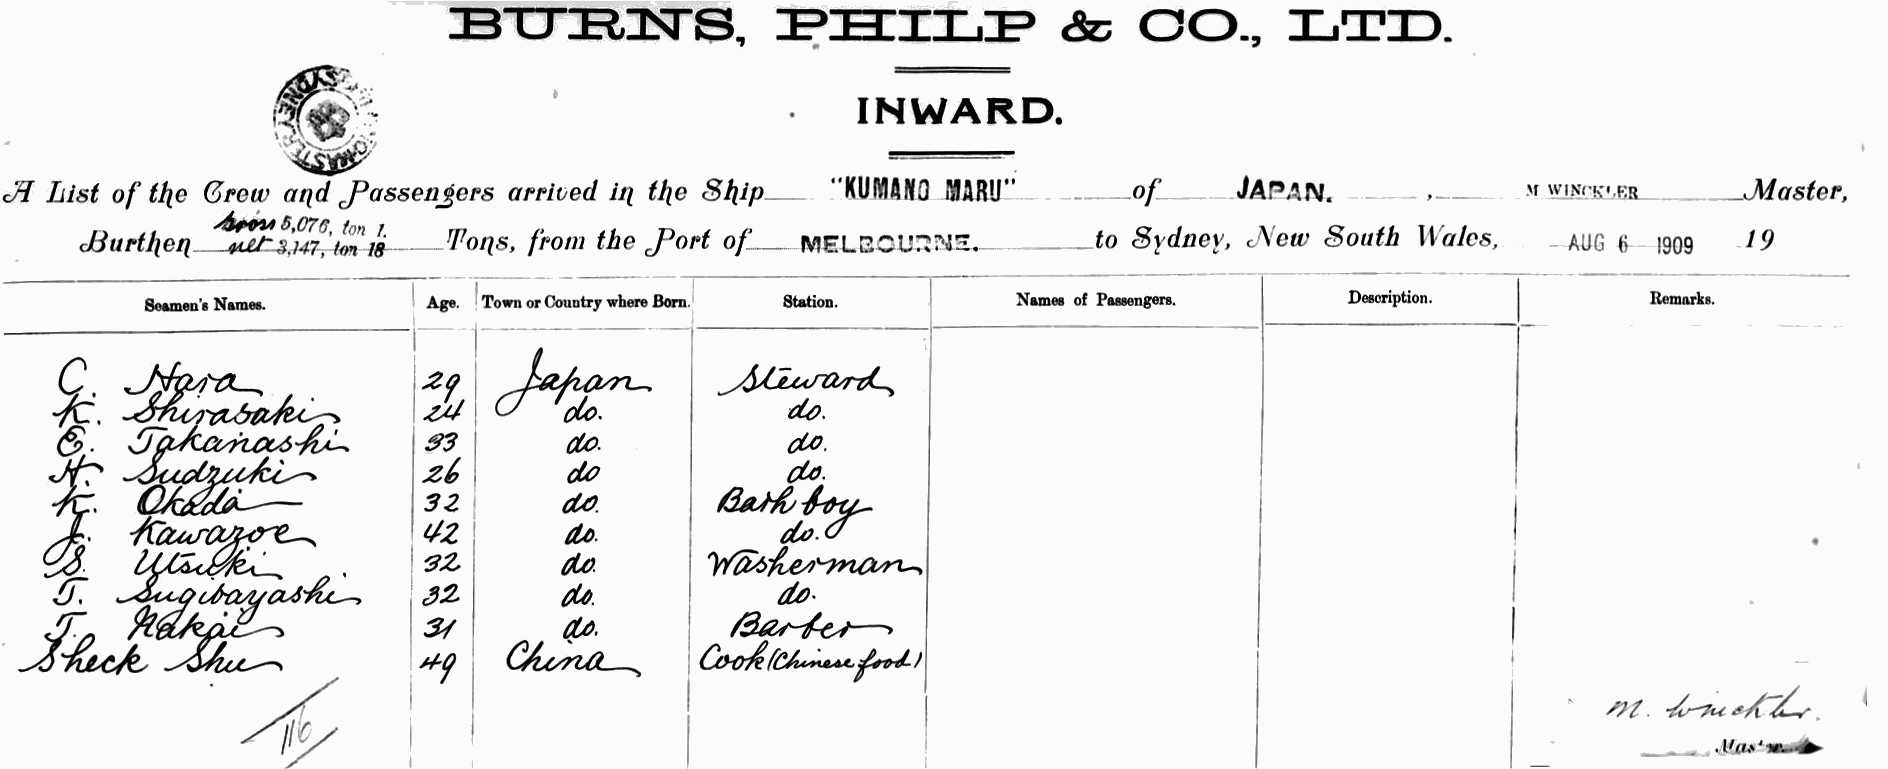 BURNS, PHILP & CO., LTD.
INWARD.
SYDNEY
A List of the Crew and Passengers arrived in the Ship "KUMANO MARU" of JAPAN. , M WINCKLER Master,
Burthen gross 5,076, ton 1. net 3,147, ton 18 Tons, from the Port of MELBOURNE. to Sydney, New South Wales, AUG 6 1909 19
Seamen's Names. Age. Town or Country where Born. Station. Names of Passengers. Description. Remarks.
C. Hara 29 Japan Steward
K. Shirasaki 24 do. do.
E. Takanashi 33 do. do.
H. Sudzuki 26 do do.
K. Okada 32 do. Bath boy
J. Kawazoe 42 do. do.
S. Utsuki 32 do. Washerman
T. Sugibayashi 32 do. do.
T. Nakai 31 do. Barber
Sheck Shu 49 China Cook (Chinese food)
116
M. Winckler.
Master.